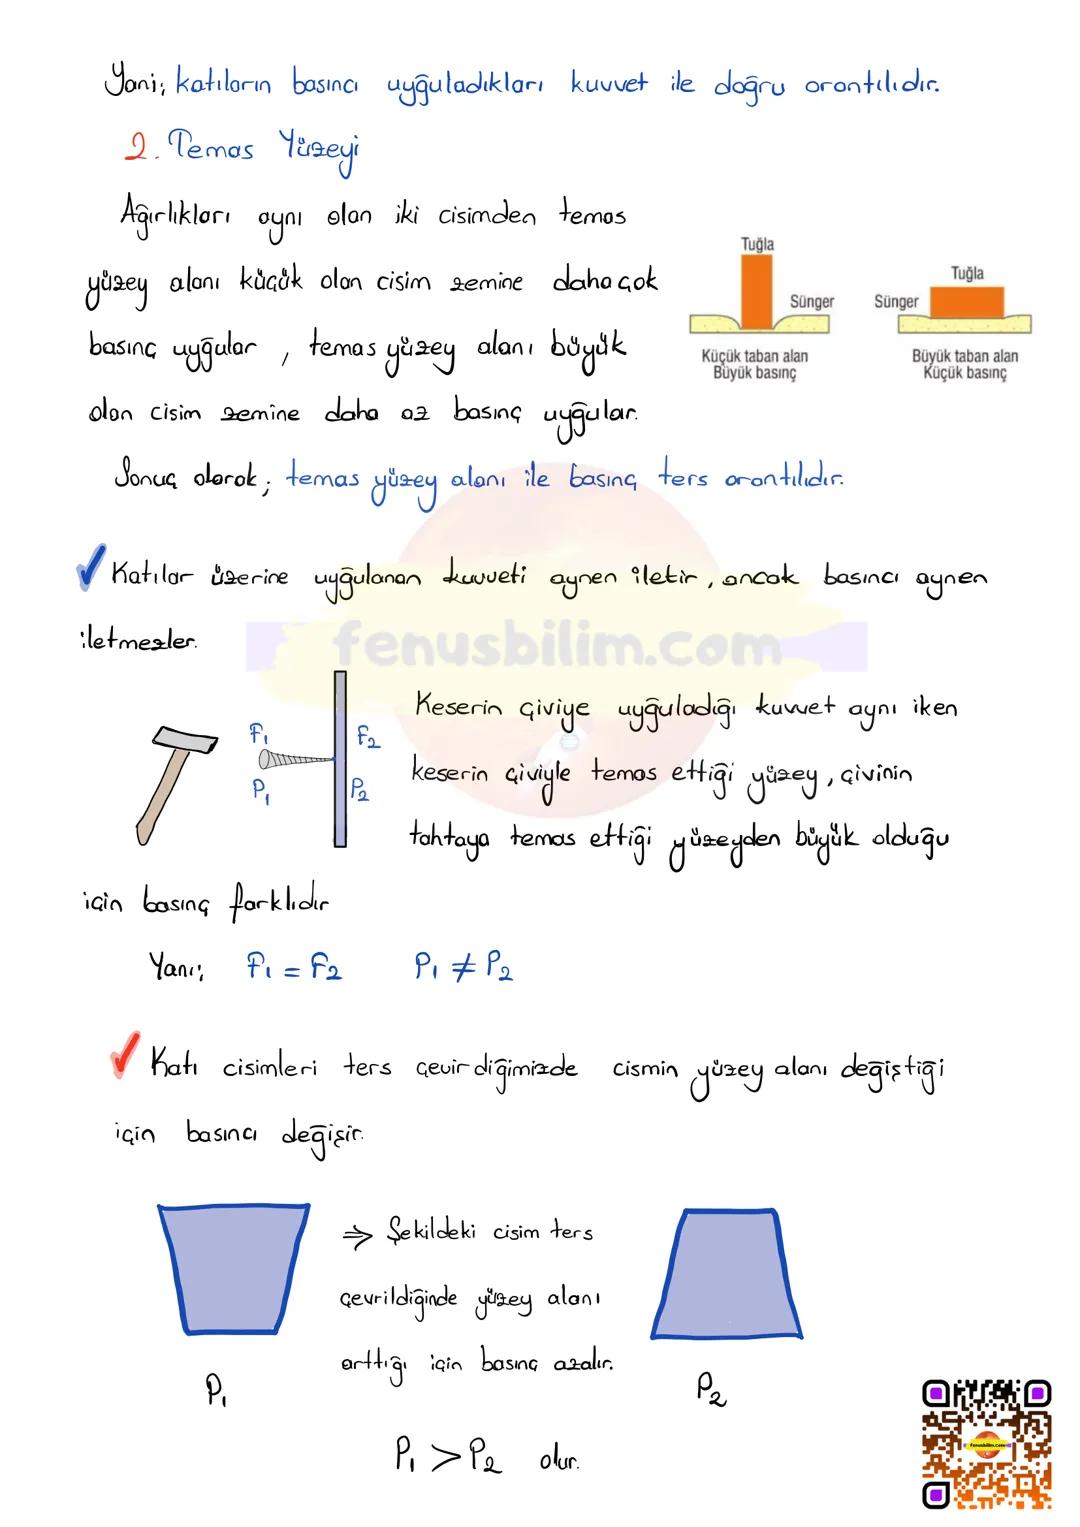 Yani; katıların basıncı uyguladıkları kuvvet ile doğru orantılıdır.
2. Temas Yüzeyi
Ağırlıkları aynı olan iki cisimden temas
yüzey alanı küçük olan cisim zemine daha çok
basınç uygular, temas yüzey alanı büyük
olan cisim zemine daha az basınç uygular.
Tuğla
Sünger
Küçük taban alan
Büyük basınç
Tuğla
Sünger
Büyük taban alan
Küçük basınç
Sonuç olarak; temas yüzey alanı ile basınç ters orantılıdır.
Katılar üzerine uygulanan kuvveti aynen iletir, ancak basıncı aynen
iletmezler.
fenusbilim.com
F₁
P₁
F₂
P₂
Keserin çiviye uyguladığı kuvvet aynı iken
keserin çiviyle temas ettiği yüzey, çivinin
tahtaya temas ettiği yüzeyden büyük olduğu
için basınç farklıdır
Yani; F₁ = F₂ P₁ ≠ P₂
Katı cisimleri ters çevirdiğimizde cismin yüzey alanı değiştiği
için basıncı değişir.
⇒ Şekildeki cisim ters
çevrildiğinde yüzey alanı
arttığı için basınç azalır.
P₁
P₂
P₁ > P₂ olur.
fenusbilim.com